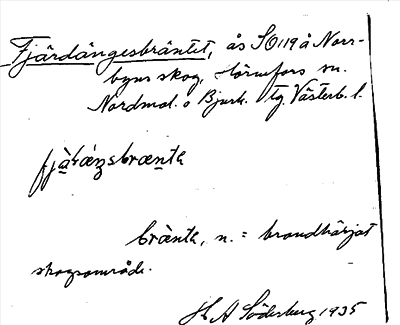 Fjärdängesbräntet, ås SO 119 å Norr-
byns skog, Hörnefors sn.
Nordmal. o Bjurh. tg. Västerb. l.
bränte, n. = brandhärjat
skogsområde.
H A Söderberg 1935